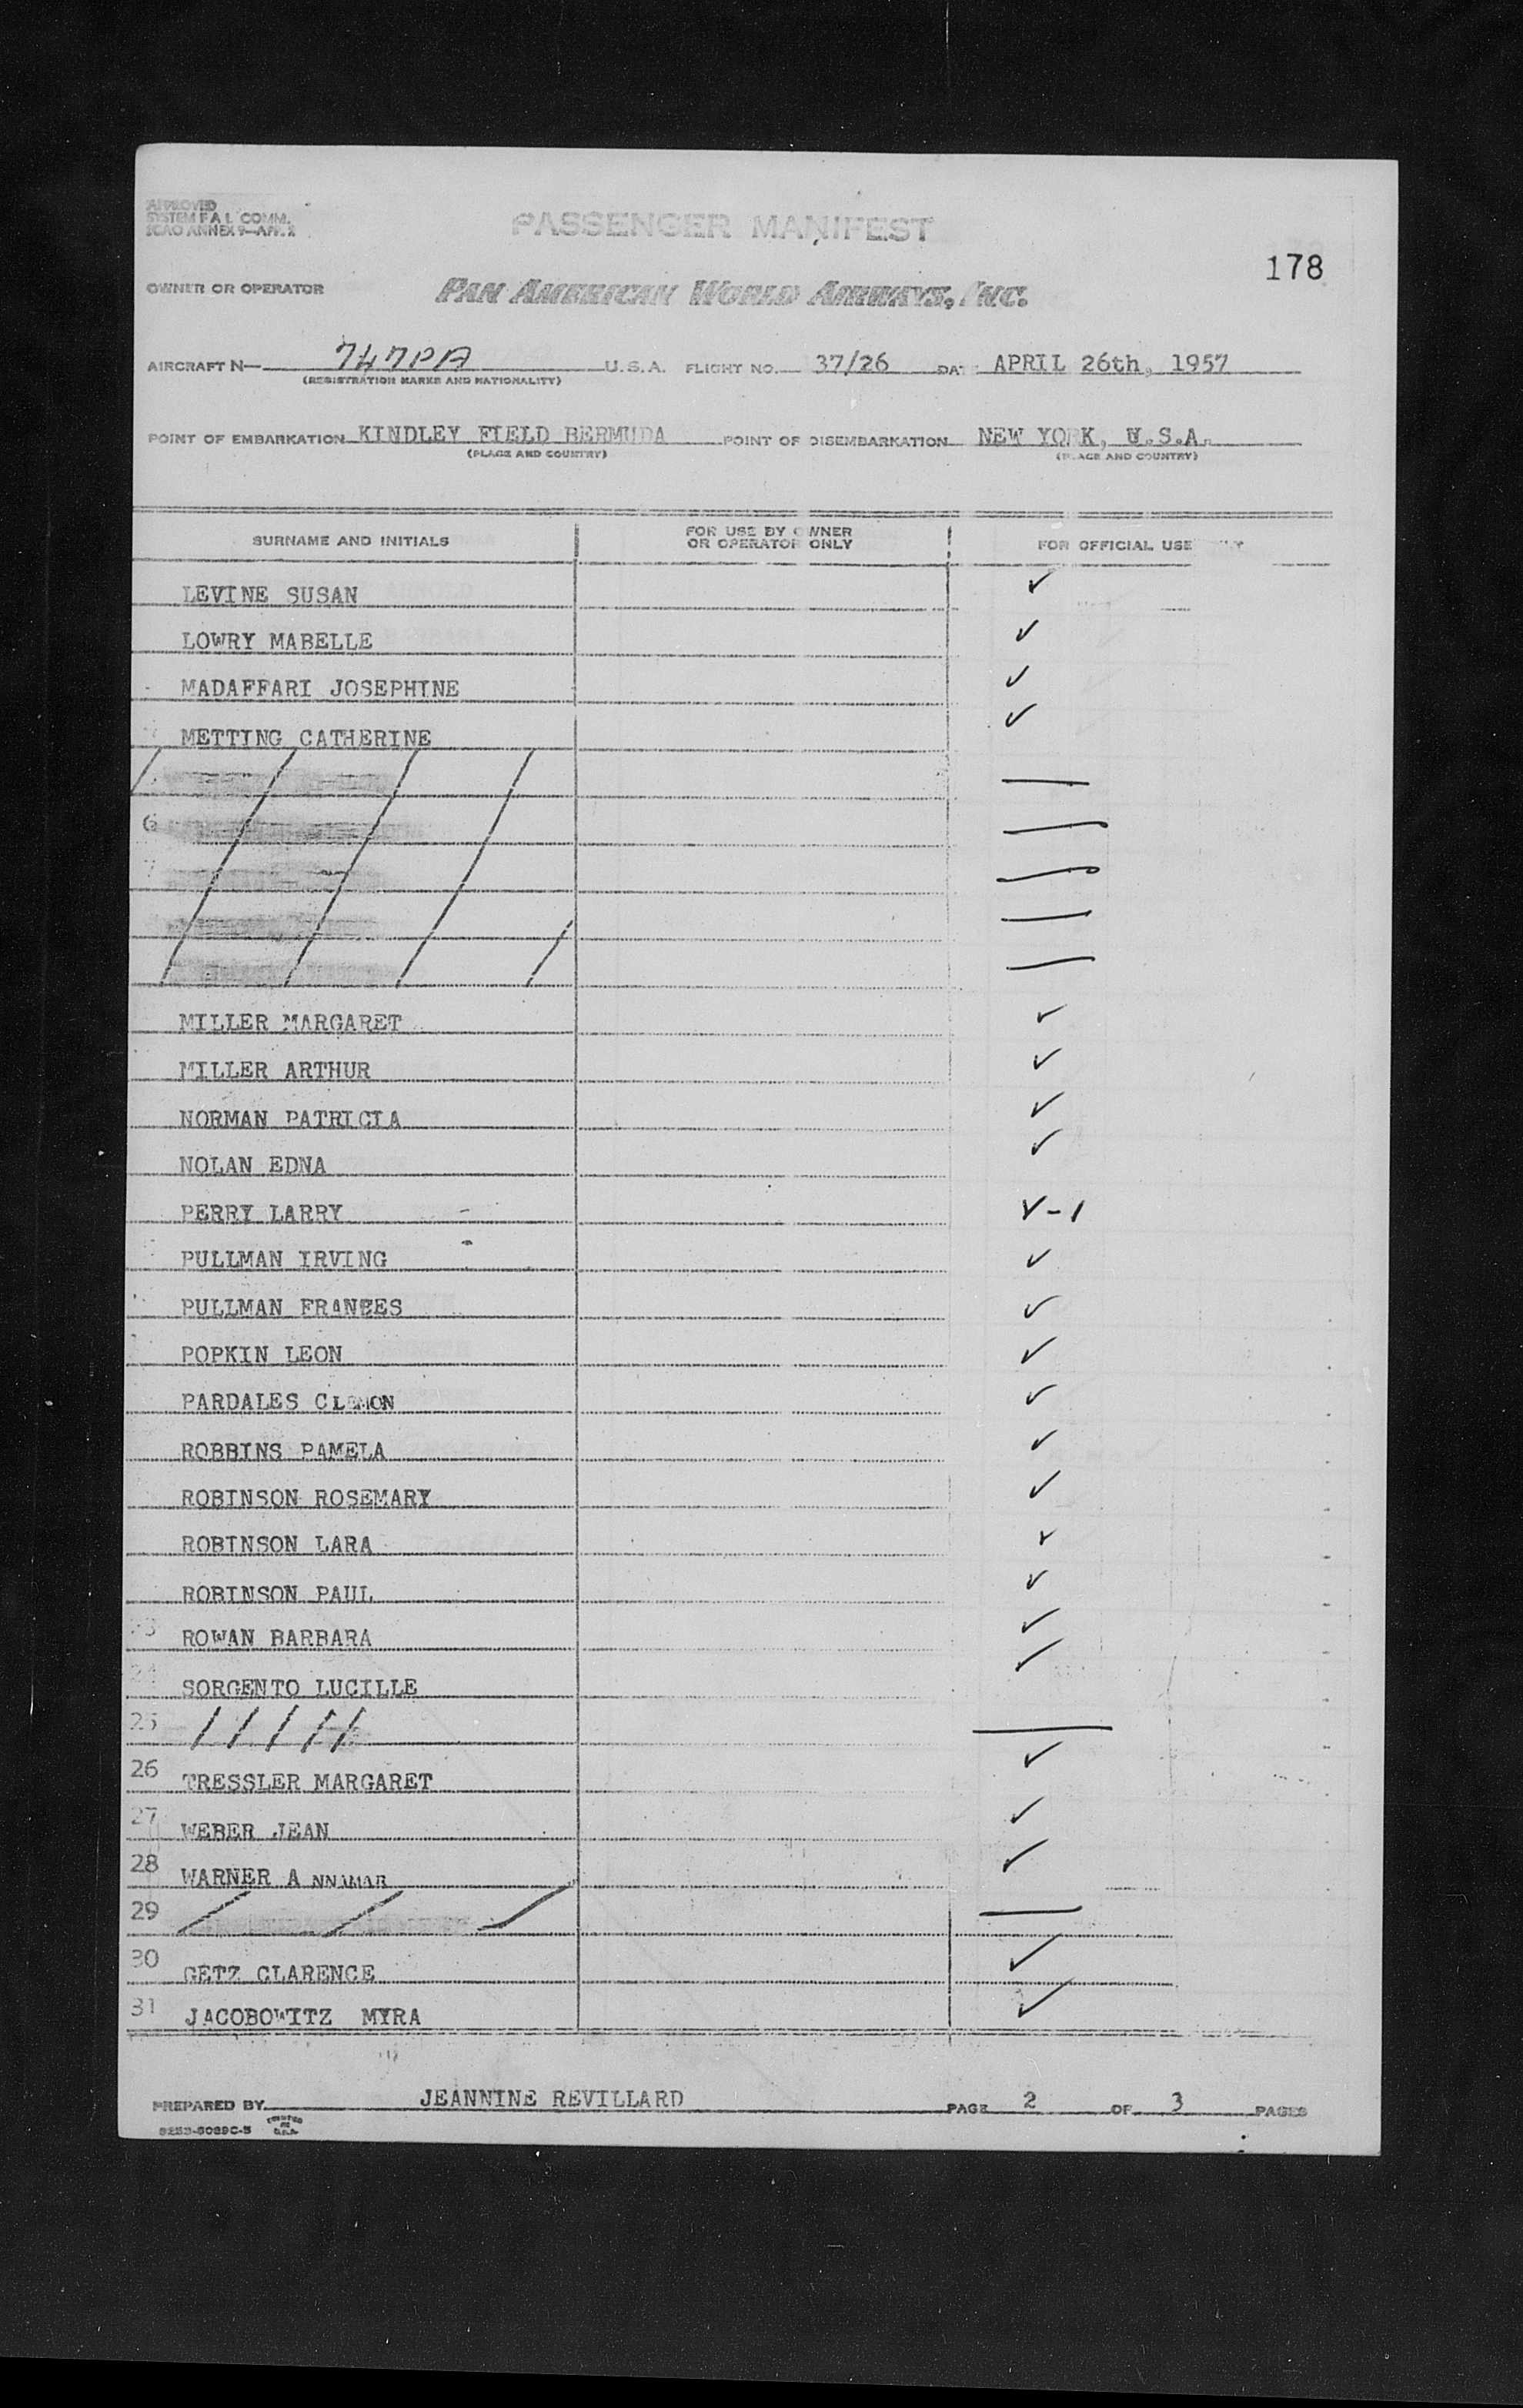 APPROVED
SYSTEM F A L COMM.
ICAO ANNEX 9—APP. 2
PASSENGER MANIFEST
178
OWNER OR OPERATOR PAN AMERICAN WORLD AIRWAYS, INC.
AIRCRAFT N— 747PA U.S.A. FLIGHT NO. 37/26 DAT APRIL 26th, 1957
(REGISTRATION MARKS AND NATIONALITY)
POINT OF EMBARKATION KINDLEY FIELD BERMUDA POINT OF DISEMBARKATION NEW YORK, U.S.A.
(PLACE AND COUNTRY) (PLACE AND COUNTRY)
SURNAME AND INITIALS FOR USE BY OWNER OR OPERATOR ONLY FOR OFFICIAL USE
LEVINE SUSAN ✓
LOWRY MABELLE ✓
MADAFFARI JOSEPHINE ✓
METTING CATHERINE ✓
6
7
MILLER MARGARET ✓
MILLER ARTHUR ✓
NORMAN PATRICIA ✓
NOLAN EDNA ✓
PERRY LARRY - ✓-1
PULLMAN IRVING - ✓
PULLMAN FRANCES ✓
POPKIN LEON ✓
PARDALES CLEMON ✓
ROBBINS PAMELA ✓
ROBINSON ROSEMARY ✓
ROBINSON LARA ✓
ROBINSON PAUL ✓
23 ROWAN BARBARA ✓
24 SORGENTO LUCILLE ✓
25 //////
26 TRESSLER MARGARET ✓
27 WEBER JEAN ✓
28 WARNER ANNAMAR ✓
29
30 GETZ CLARENCE ✓
31 JACOBOWITZ MYRA ✓
PREPARED BY JEANNINE REVILLARD PAGE 2 OF 3 PAGES
PRINTED IN U.S.A.